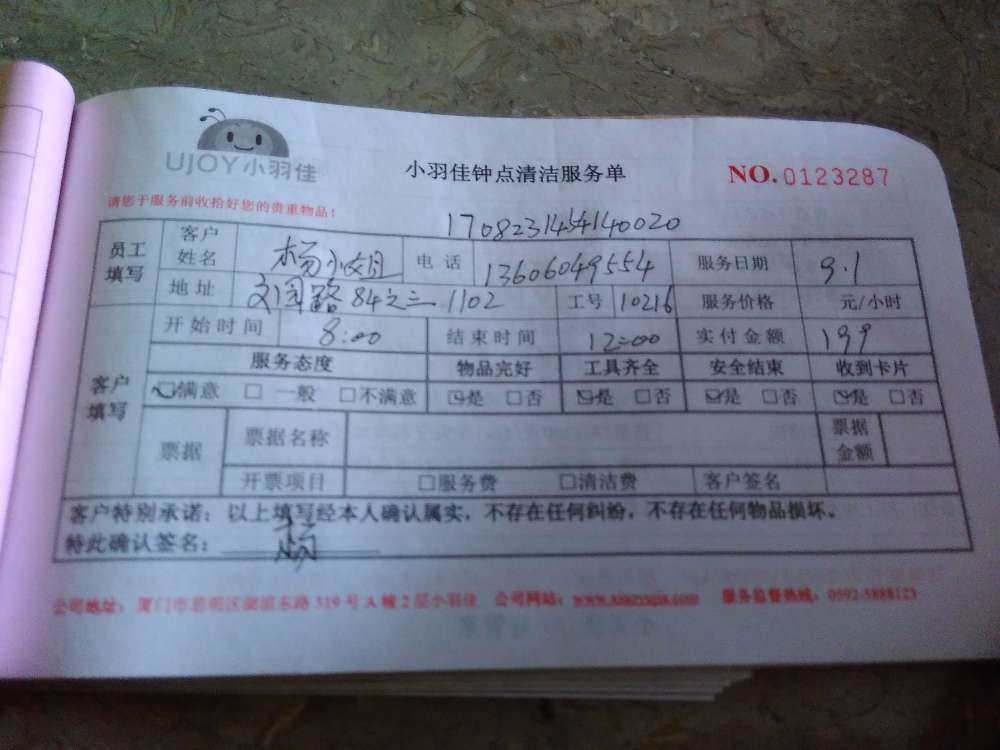 UJOY小羽佳
小羽佳钟点清洁服务单
NO.0123287
请您于服务前收拾好您的贵重物品！
员工填写 客户姓名 杨小姐 电话 13606049554 服务日期 9.1
地址 文园路84之三1102 工号 10216 服务价格 元/小时
客户填写 开始时间 8:00 结束时间 12:00 实付金额 199
服务态度 物品完好 工具齐全 安全结束 收到卡片
满意 □ 一般 □不满意 是 □否 是 □否 是 □否 是 □否
票据 票据名称 票据金额
开票项目 □服务费 □清洁费 客户签名
客户特别承诺：以上填写经本人确认属实，不存在任何纠纷，不存在任何物品损坏。
特此确认签名：杨
公司地址：厦门市思明区湖滨东路319号A幢2层小羽佳 公司网站： 服务监督热线：0592-5888123